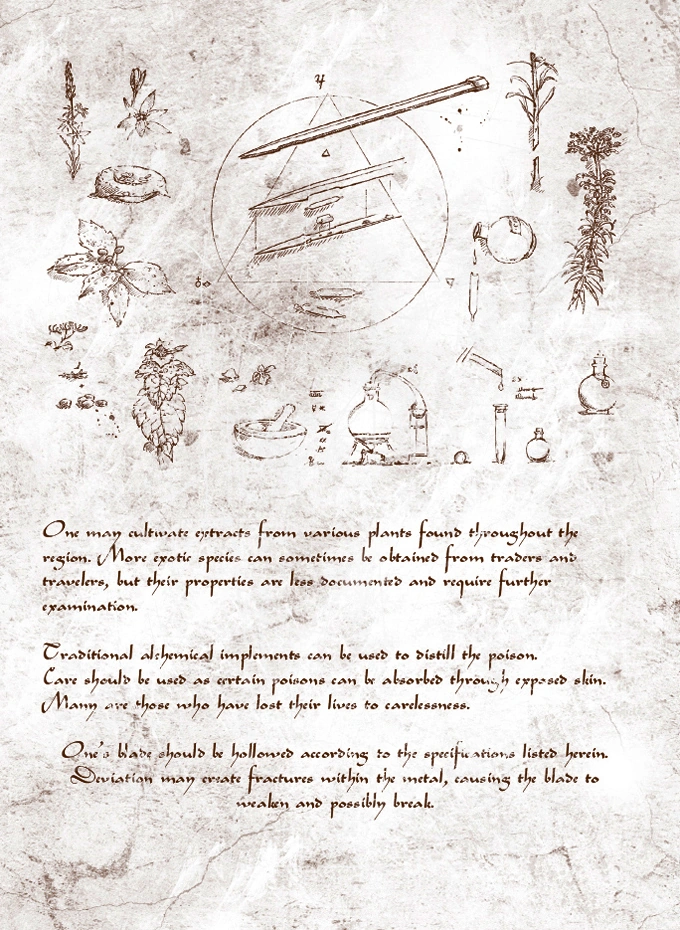 One may cultivate extracts from various plants found throughout the
region. More exotic species can sometimes be obtained from traders and
travelers, but their properties are less documented and require further
examination.
Traditional alchemical implements can be used to distill the poison.
Care should be used as certain poisons can be absorbed through exposed skin.
Many are those who have lost their lives to carelessness.
One's blade should be hollowed according to the specifications listed herein.
Deviation may create fractures within the metal, causing the blade to
weaken and possibly break.